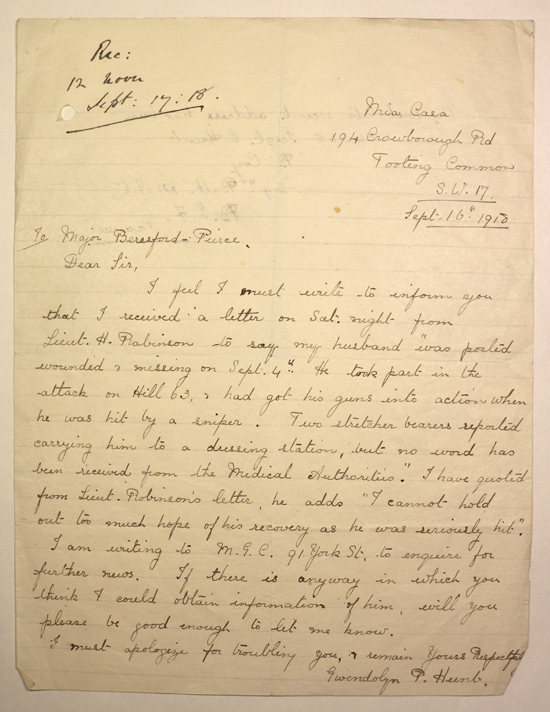 Rec:
12 noon
Sept: 17: 18.
Miss Casa
194 Crowborough Rd
Tooting Common
S.W. 17.
Sept. 16th 1918
To Major Beresford-Peirse.
Dear Sir,
I feel I must write to inform you
that I received a letter on Sat. night from
Lieut. H. Robinson to say my husband "was posted
wounded & missing on Sept. 4th He took part in the
attack on Hill 63, & had got his guns into action when
he was hit by a sniper. Two stretcher bearers reported
carrying him to a dressing station, but no word has
been received from the Medical Authorities." I have quoted
from Lieut. Robinson's letter, he adds "I cannot hold
out too much hope of his recovery as he was seriously hit".
I am writing to M.G.C. 91 York St, to enquire for
further news. If there is anyway in which you
think I could obtain information of him, will you
please be good enough to let me know.
I must apologize for troubling you, & remain Yours Respectful
Gwendolyn P. Hunt.